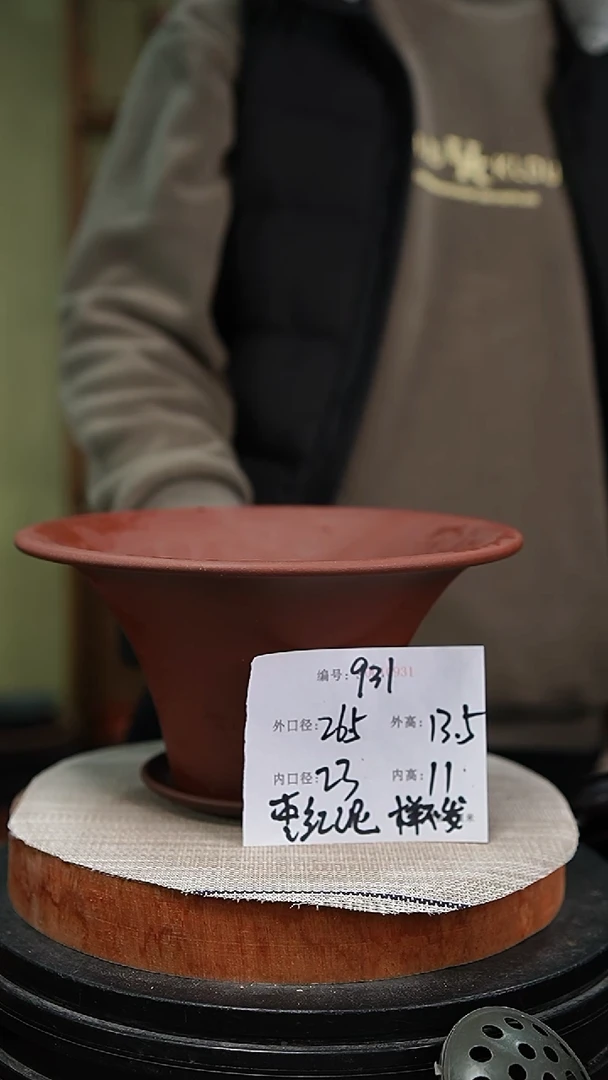 编号: 931
外口径: 265 外高: 13.5
内口径: 23 内高: 11
枣红泥